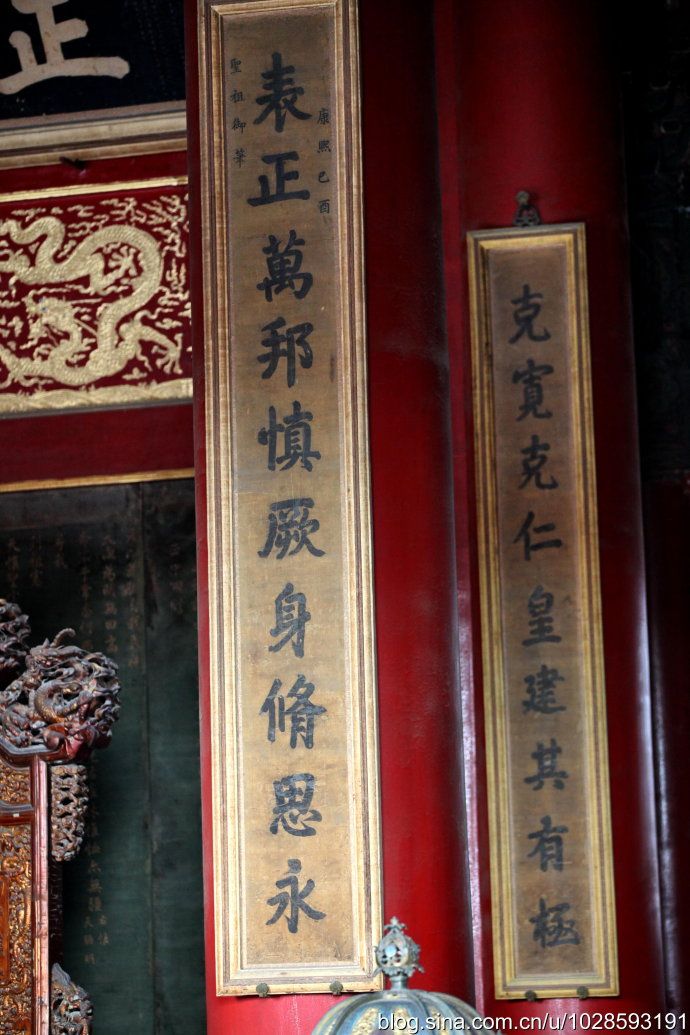 克寬克仁皇建其有極
康熙己酉
表正萬邦慎厥身脩思永
聖祖御筆
正
blog.sina.com.cn/u/1028593191